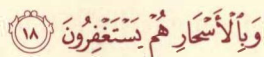 وَبِٱلْأَسْحَارِ هُمْ يَسْتَغْفِرُونَ ١٨